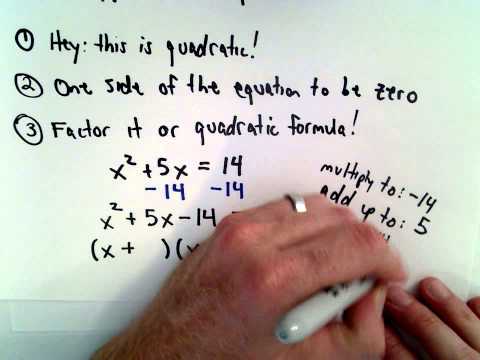 ① Hey: this is quadratic!
② One side of the equation to be zero
③ Factor it or quadratic formula!
x² + 5x = 14
-14 -14
x² + 5x - 14
(x + ) (x
multiply to: -14
add up to: 5